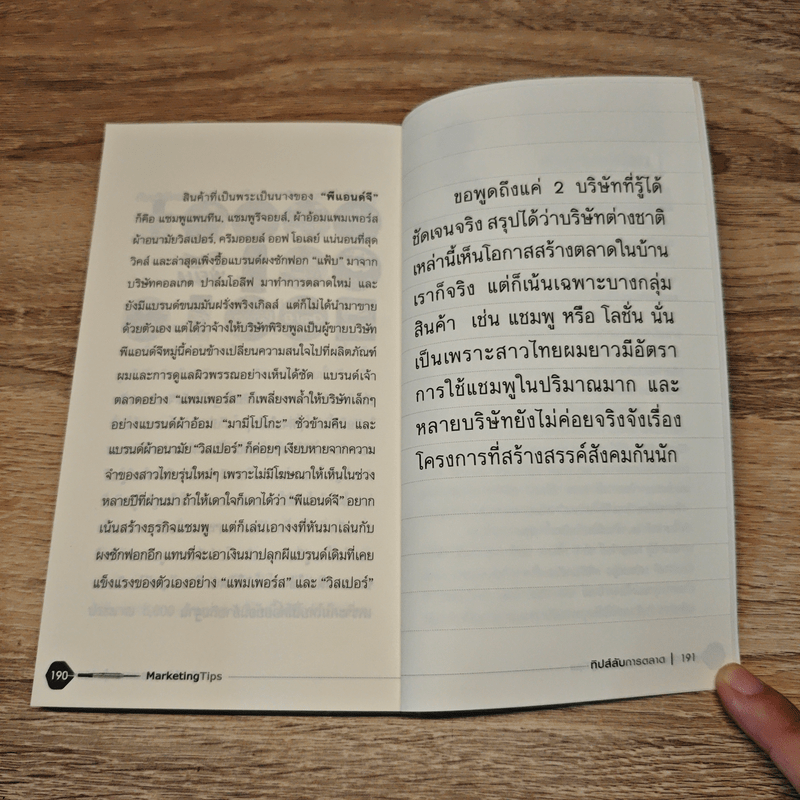 สินค้าที่เป็นพระเป็นนางของ “พีแอนด์จี”
ก็คือ แชมพูแพนทีน, แชมพูรีจอยส์, ผ้าอ้อมแพมเพอร์ส
ผ้าอนามัยวิสเปอร์, ครีมออยล์ ออฟ โอเลย์ แน่นอนที่สุด
วิคส์ และล่าสุดเพิ่งซื้อแบรนด์ผงซักฟอก “แฟ้บ” มาจาก
บริษัทคอลเกต ปาล์มโอลีฟ มาทำการตลาดใหม่ และ
ยังมีแบรนด์ขนมมันฝรั่งพริงเกิลส์ แต่ก็ไม่ได้นำมาขาย
ด้วยตัวเอง แต่ได้ว่าจ้างให้บริษัทพิริยพูลเป็นผู้ขายบริษัท
พีแอนด์จีหมู่นี้ค่อนข้างเปลี่ยนความสนใจไปที่ผลิตภัณฑ์
ผมและการดูแลผิวพรรณอย่างเห็นได้ชัด แบรนด์เจ้า
ตลาดอย่าง “แพมเพอร์ส” ก็เพลี่ยงพล้ำให้บริษัทเล็กๆ
อย่างแบรนด์ผ้าอ้อม “มามี่โปโกะ” ชั่วข้ามคืน และ
แบรนด์ผ้าอนามัย “วิสเปอร์” ก็ค่อยๆ เงียบหายจากความ
จำของสาวไทยรุ่นใหม่ๆ เพราะไม่มีโฆษณาให้เห็นในช่วง
หลายปีที่ผ่านมา ถ้าให้เดาใจก็เดาได้ว่า “พีแอนด์จี” อยาก
เน้นสร้างธุรกิจแชมพู แต่ก็เล่นเอางงที่หันมาเล่นกับ
ผงซักฟอกอีก แทนที่จะเอาเงินมาปลุกผีแบรนด์เดิมที่เคย
แข็งแรงของตัวเองอย่าง “แพมเพอร์ส” และ “วิสเปอร์”
190 MarketingTips
ขอพูดถึงแค่ 2 บริษัทที่รู้ได้
ชัดเจนจริง สรุปได้ว่าบริษัทต่างชาติ
เหล่านี้เห็นโอกาสสร้างตลาดในบ้าน
เราก็จริง แต่ก็เน้นเฉพาะบางกลุ่ม
สินค้า เช่น แชมพู หรือ โลชั่น นั่น
เป็นเพราะสาวไทยผมยาวมีอัตรา
การใช้แชมพูในปริมาณมาก และ
หลายบริษัทยังไม่ค่อยจริงจังเรื่อง
โครงการที่สร้างสรรค์สังคมกันนัก
ทิปส์ลับการตลาด | 191